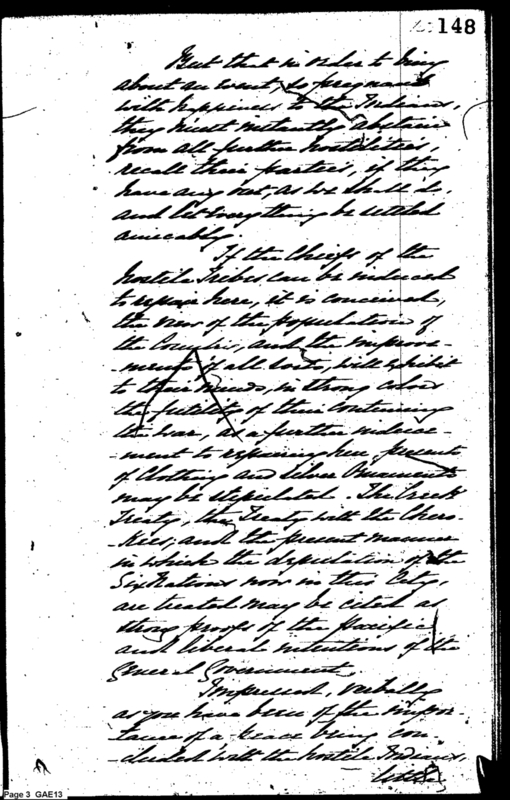 148
But that in order to bring
about an event, so pregnant
with happiness to the Indians,
they must instantly abstain
from all further hostilities,
recall their parties, if they
have any out, as we shall do,
and let every thing be settled
amicably.
If the Chiefs of the
hostile Tribes can be induced
to repair here, it is conceived,
the view of the population of
the Country, and the improve-
-ments of all sorts, will exhibit
to their minds, in strong colors
the futility of their continuing
the war, as a further induce-
-ment to repairing here presents
of Clothing and Silver Ornaments
may be stipulated. The Creek
Treaty, the Treaty with the Chero-
-kees, and the present manner
in which the deputation of the
Six Nations now in this City,
are treated may be cited as
strong proofs of the pacific
and liberal intentions of the
General Government.
Impressed, verbally
as you have been of the impor-
-tance of a peace being con-
-cluded with the hostile Indians,
Page 3 GAE13